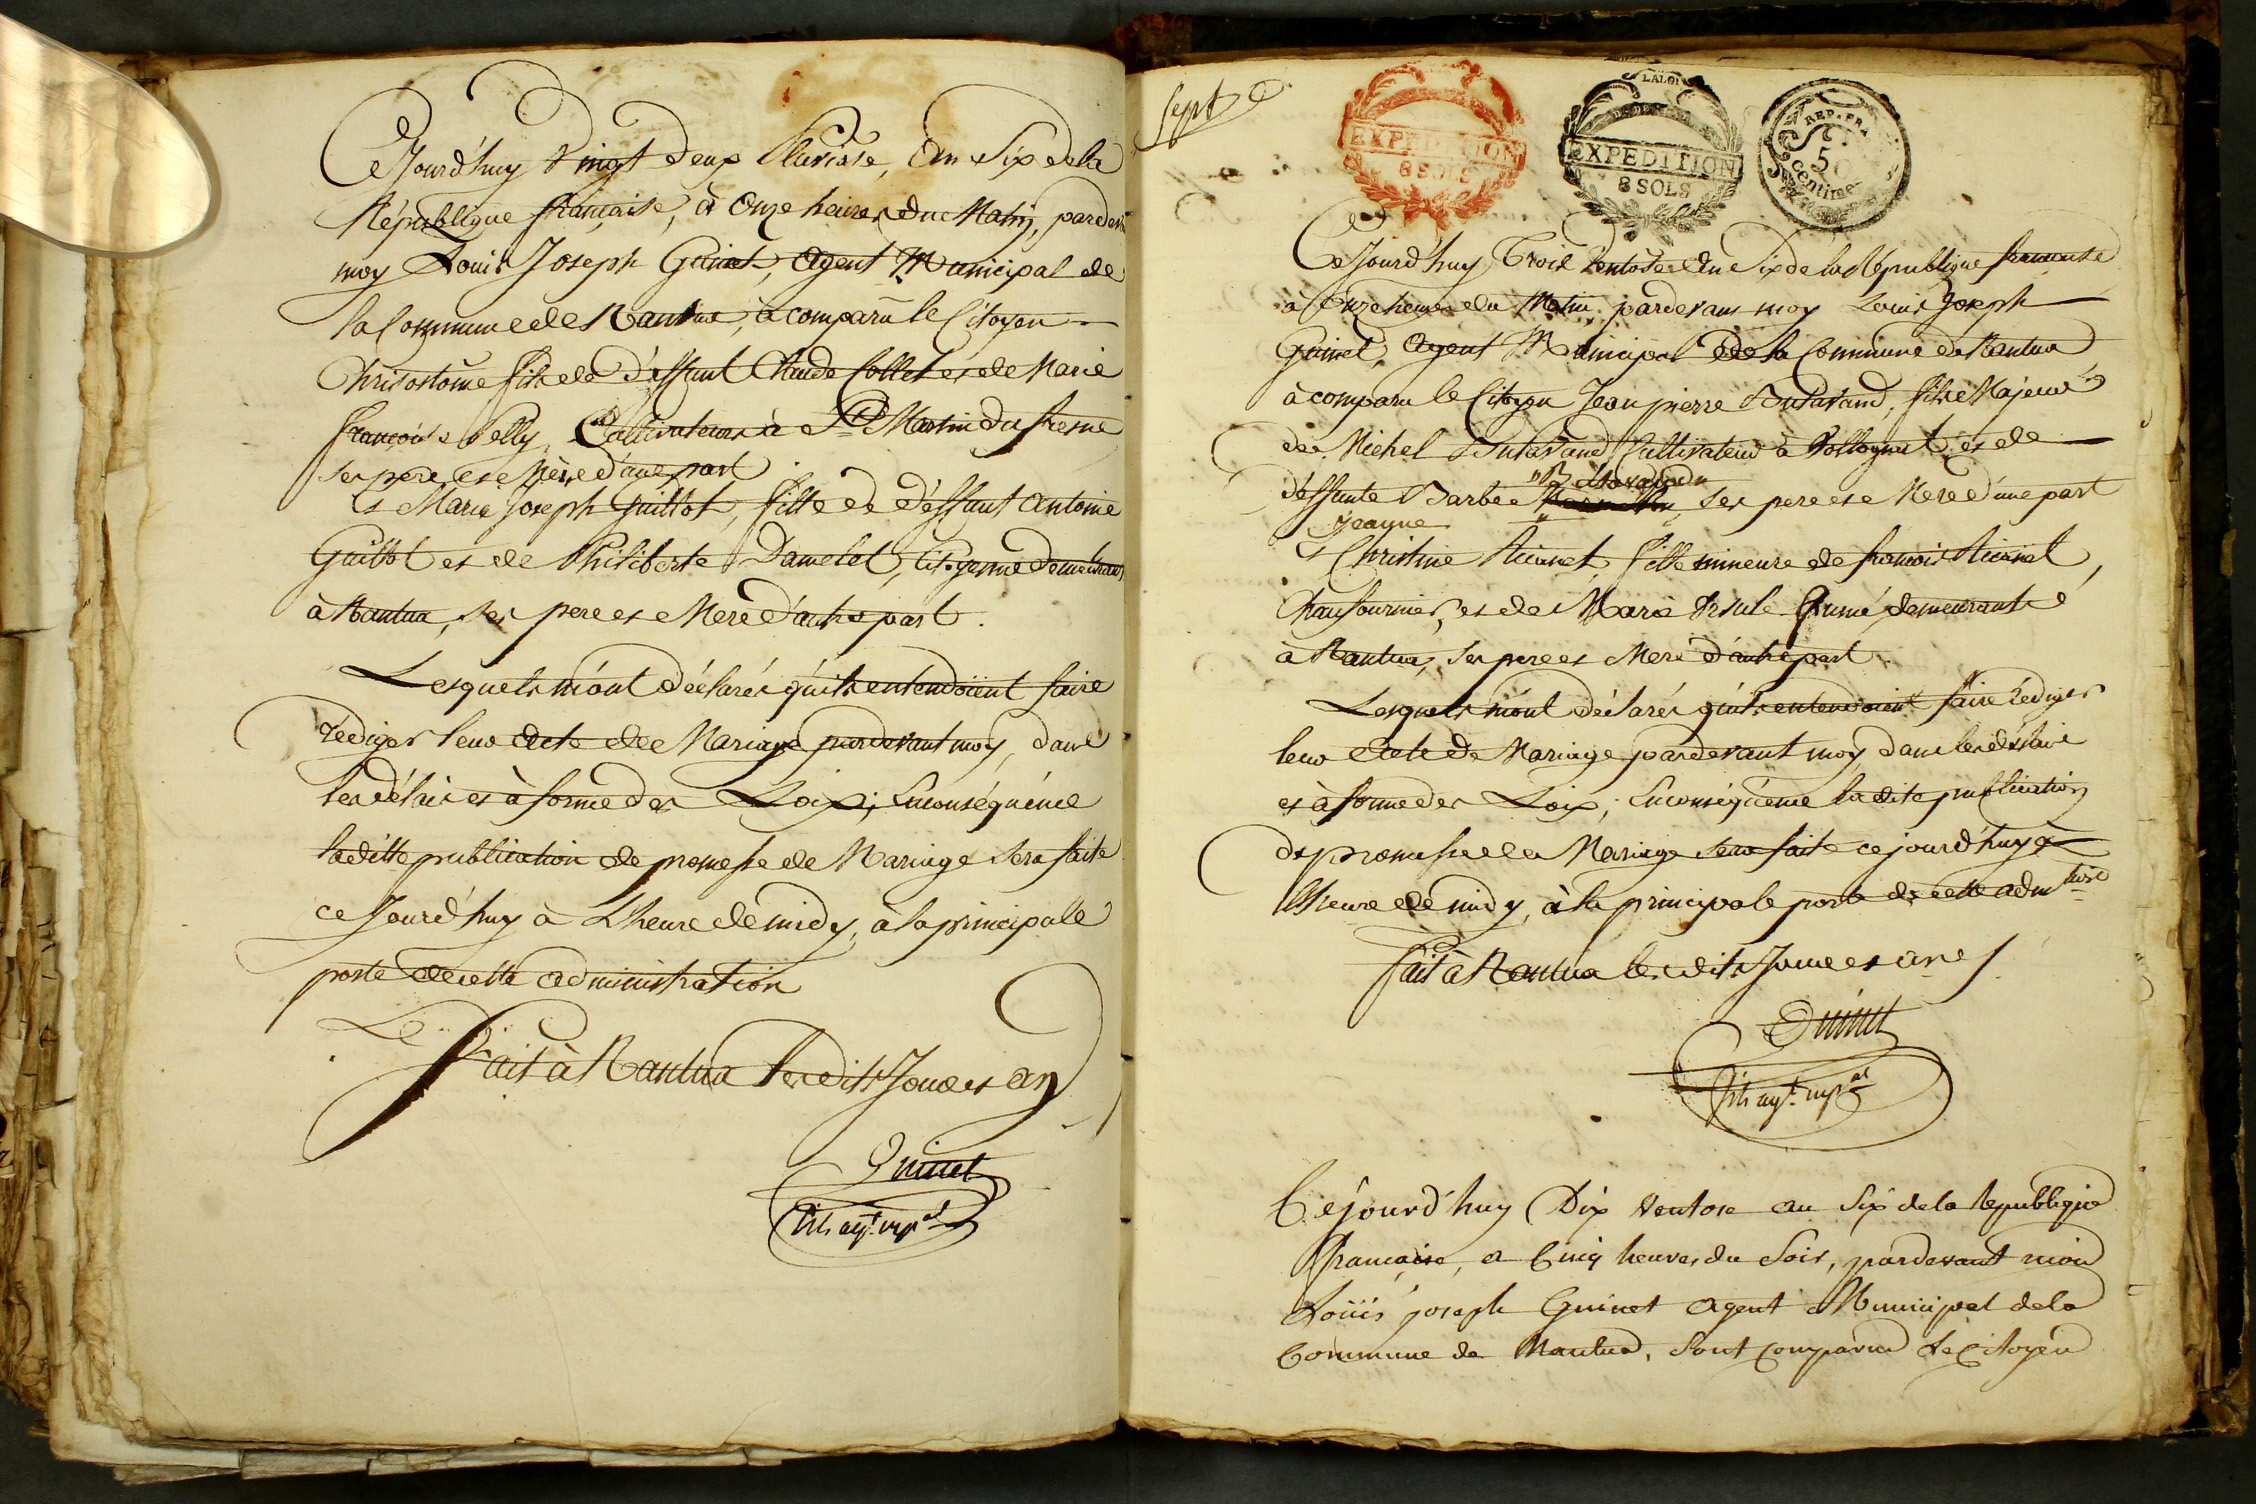 Ce Jourd'huy Vingt deux Pluviose, An Six de la
République française, à Onze heures du Matin, pardevt
moy Louis Joseph Guinet, Agent Municipal de
la Commune de Nantua, à comparu le Citoyen
Chrisostome fils de déffunt Claude Collet et de Marie
françoise Velly, Cultivateurs à St Martin du fresne
ses pere et Mère d'une part
Et Marie Joseph Guillot, fille de déffunt Antoine
Guillot et de Philiberte Damelet, Citoyenne demeurant
à Nantua, ses pere et Mere d'autre part.
Lesquels m'ont déclarés qu'ils entendoient faire
rediger leur Acte de Mariage pardevant moy, dans
les délais et à forme des Loix; Enconséquence
laditte publication de promesse de Mariage sera faite
ce Jourd'huy à L'heure de midy, à la principalle
porte de cette administration
Fait à Nantua lesdits Jour et an
Guinet
agt. mpal
Sept
LA LOI
EXPEDITION
8 SOLS
EXPEDITION
8 SOLS
REP. FRA.
50
Centimes
Ce Jourd'huy Trois Ventose An Six de la République francaise
à Onze heures du Matin, pardevant moy Louis Joseph
Guinet, Agent Municipal de la Commune de Nantua
à comparu le Citoyen Jean pierre Butavand, fils Majeur
de Michel Butavand Cultivateur à Vollognat, et de
déffunte Barbe "Butavand" ses pere et Mere d'une part
Jeanne
Et Christine fille mineure de francois
Chaufournier, et de Marie Ursule demeurants
à Nantua, ses pere et Mere d'autre part.
Lesquels m'ont déclarés qu'ils entendoient faire rédiger
leur Acte de Mariage pardevant moy dans les délais
et à forme des Loix; Enconséquence la dite publication
de promesse de Mariage sera faite ce jourd'huy à
L'heure de midy, à la principale porte de cette admtion
fait à Nantua lesdits Jour et an
Guinet
agt. mpal
Cejourd'huy Dix Ventose an Six de la Republique
francaise, a Cinq heures du Soir, pardevant moi
Loüis joseph Guinet Agent Municipal de la
Commune de Nantua, sont comparus Le Citoyen